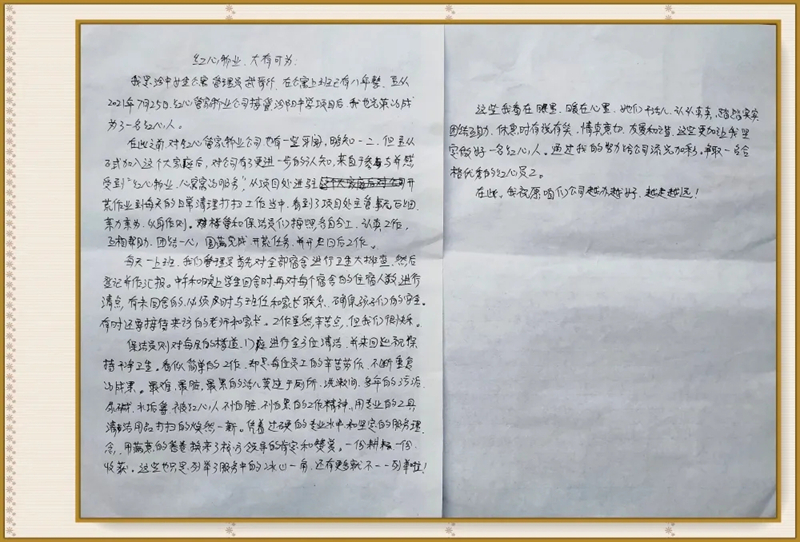 红心物业、大有可为:
我是洛中女生公寓管理员武 在公寓上班已有八年整,且从
2021年7月25日红心管家物业公司接管洛阳中学项目后,我也荣幸的成
为了一名红心人。
在此之前,对红心管家物业公司也有一些耳闻,略知一二,但是从
正式加入这个大家庭后,对公司有了更进一步的认知,亲自参与与并感
受到“红心物业、心窝窝的服务”。从项目处进驻 开
荒作业到每天的日常清理打扫工作当中,看到了项目处主管
亲力亲为、以身作则。 和保洁员们按照各自分工、认真工作,
互相帮助、团结一心,圆满完成开荒任务,并开走日后工作。
每天一上班,我们管理员首先对全部宿舍进行卫生大排查,然后
登记并作汇报。中午和晚上学生回舍时再对每个宿舍的住宿人数进行
清点,有未回舍的,必须及时与班任和家长联系,确保孩子们的安全。
有时还要接待来访的老师和家长。工作虽然辛苦点,但我们很快乐。
保洁员则对每层的楼道、门庭进行全方位清洁,并来回巡视保
持干净卫生。看似简单的工作,却是每位员工的辛苦劳作,不断重复
的成果。最难、最脏、最累的活儿莫过于厕所、洗漱间,多年的污垢
尿碱、水垢等被红心人不怕脏、不怕累的工作精神,用专业的工具
清洁用品打扫的焕然一新。凭着过硬的专业水平和坚定的服务理
念,用满意的答卷换来了校方领导的肯定和赞美。一份耕耘一份
收获。这些也只是列举了服务中的冰山一角,还有更多就不一一列举啦!
这些我看在眼里、暖在心里,她们干活人、认认真真、踏踏实实
团结互助、休息时有说有笑、情真意切、友爱和谐,这些更加让我坚
定做好一名红心人。通过我的努力给公司添光加彩,争取一名合
格优秀的红心员工。
在此,我祝愿咱们公司越办越好、越走越远!